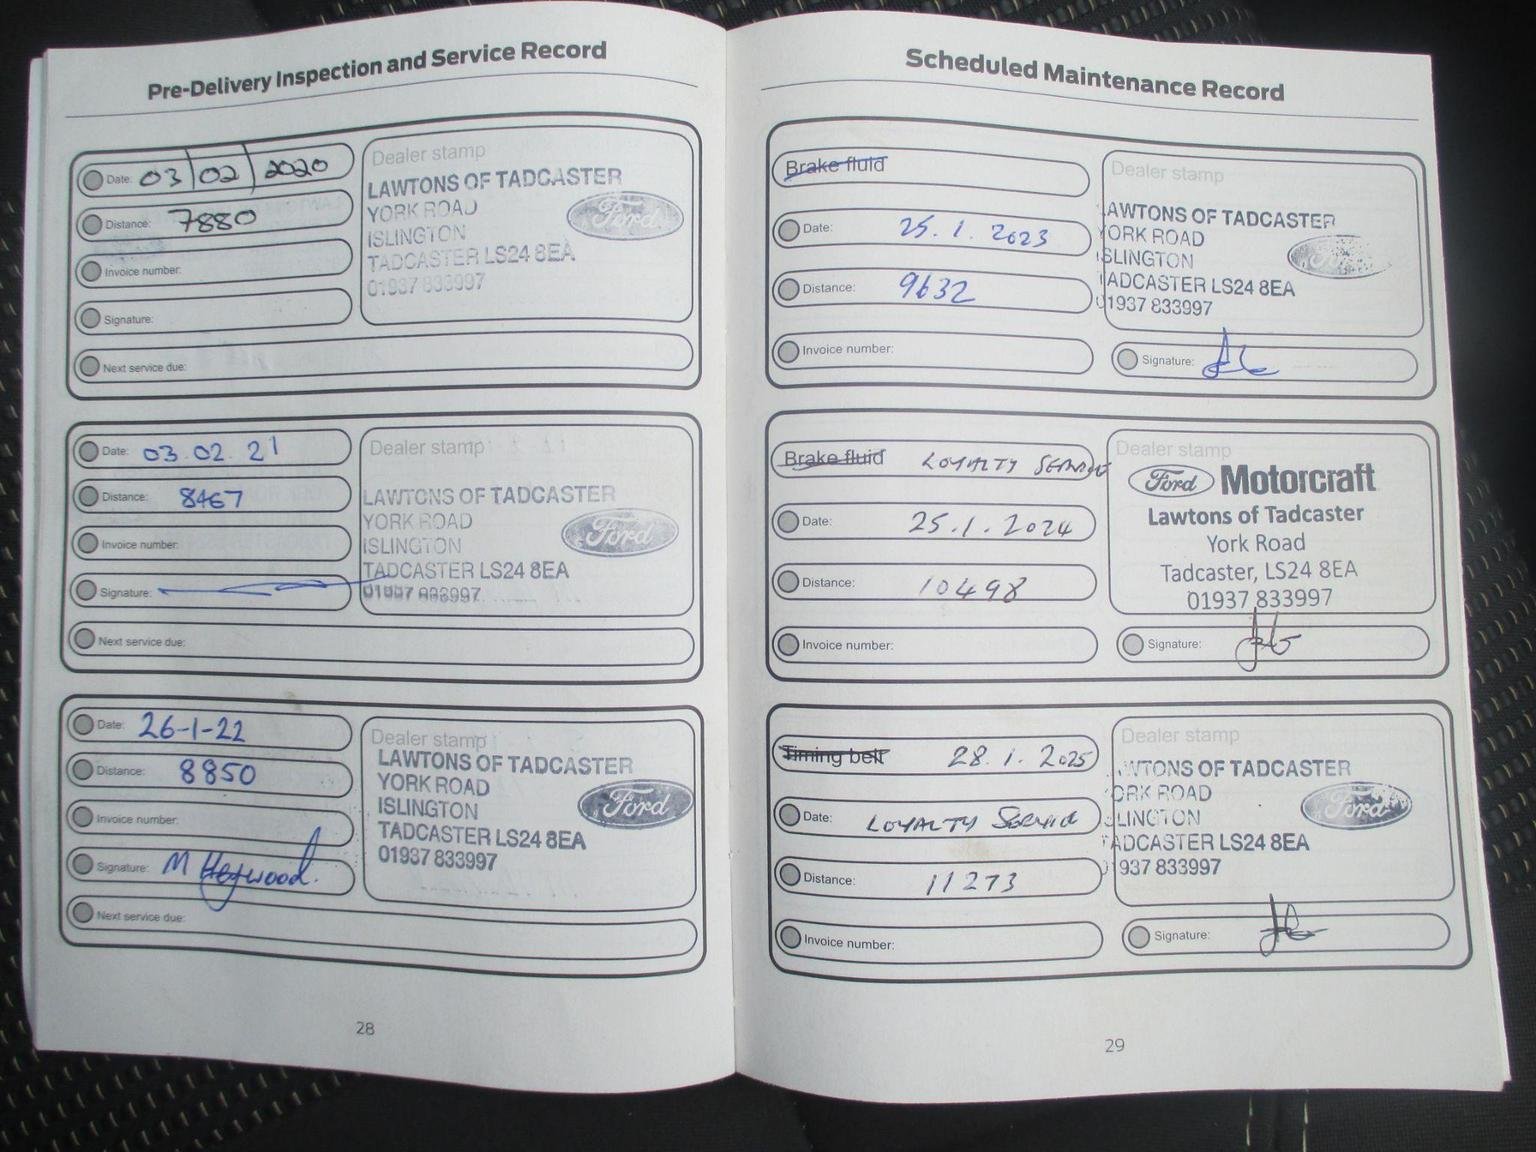 Pre-Delivery Inspection and Service Record
Date: 03/02/2020
Distance: 7880
Invoice number:
Signature:
Next service due:
Dealer stamp
LAWTONS OF TADCASTER
YORK ROAD
ISLINGTON
TADCASTER LS24 8EA
01937 833997
Ford
Date: 03.02.21
Distance: 8467
Invoice number:
Signature:
Next service due:
Dealer stamp
LAWTONS OF TADCASTER
YORK ROAD
ISLINGTON
TADCASTER LS24 8EA
01937 833997
Ford
Date: 26-1-22
Distance: 8850
Invoice number:
Signature: M Heywood.
Next service due:
Dealer stamp
LAWTONS OF TADCASTER
YORK ROAD
ISLINGTON
TADCASTER LS24 8EA
01937 833997
Ford
28
Scheduled Maintenance Record
Brake fluid
Date: 25.1.2023
Distance: 9632
Invoice number:
Dealer stamp
AWTONS OF TADCASTER
YORK ROAD
ISLINGTON
TADCASTER LS24 8EA
01937 833997
Ford
Signature:
Brake fluid LOYALTY SERVICE
Date: 25.1.2024
Distance: 10498
Invoice number:
Dealer stamp
Ford Motorcraft
Lawtons of Tadcaster
York Road
Tadcaster, LS24 8EA
01937 833997
Signature:
Timing belt 28.1.2025
Date: LOYALTY SERVICE
Distance: 11273
Invoice number:
Dealer stamp
WTONS OF TADCASTER
ORK ROAD
SLINGTON
TADCASTER LS24 8EA
01937 833997
Ford
Signature:
29